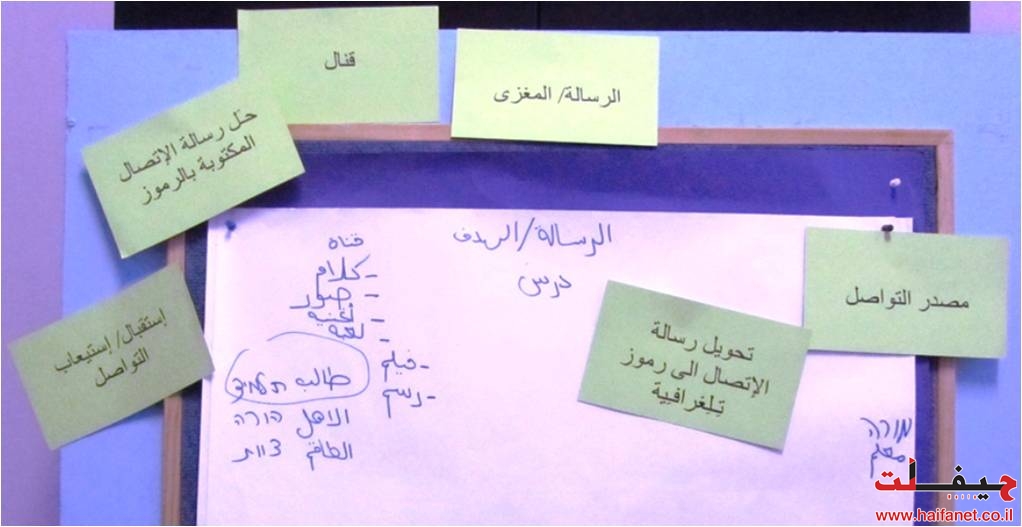 قنال
الرسالة/ المغزى
حل رسالة الإتصال
المكتوبة بالرموز
إستقبال/ إستيعاب
التواصل
مصدر التواصل
تحويل رسالة
الإتصال الى رموز
تلغرافية
الرسالة/الهدف
درس
قناه
- كلام
- صور
- أغنيه
- لغه
- فيلم
- رسم
طالب תלמיד
الاهل הורה
الطاقم צוות
מורה
معلم
حيفانت
www.haifanet.co.il